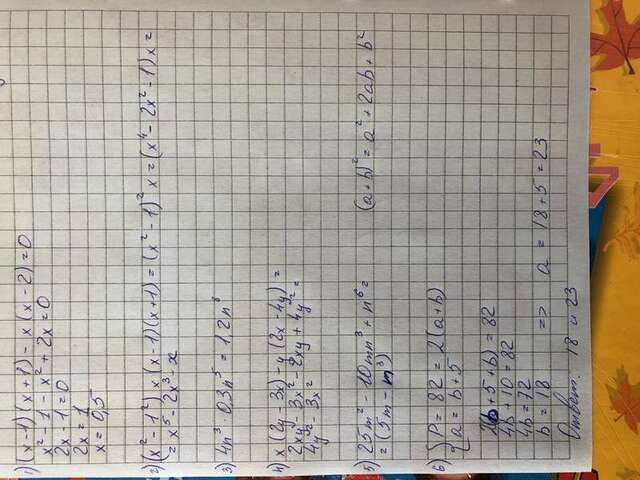 1) (x-1)(x+1) - x(x-2)=0
x² - 1 - x² + 2x=0
2x - 1=0
2x = 1
x = 0,5
2) (x² - 1²) x (x-1)(x+1) = (x² - 1)² x = (x⁴ - 2x² - 1) x =
= x⁵ - 2x³ - x
3) 4n³ · 0,3n⁵ = 1,2n⁸
4) x(2y - 3x) - y(2x - 4y) =
2xy - 3x² - 2xy + 4y² =
4y² - 3x² =
5) 25m² - 10mn³ + n⁶ = (a+b)² = a² + 2ab + b²
= (5m - n³)
6) { P = 82 = 2(a+b)
a = b+5
2(b+5+b) = 82
4b + 10 = 82
4b = 72
b = 18 => a = 18+5 = 23
Ответ: 18 и 23